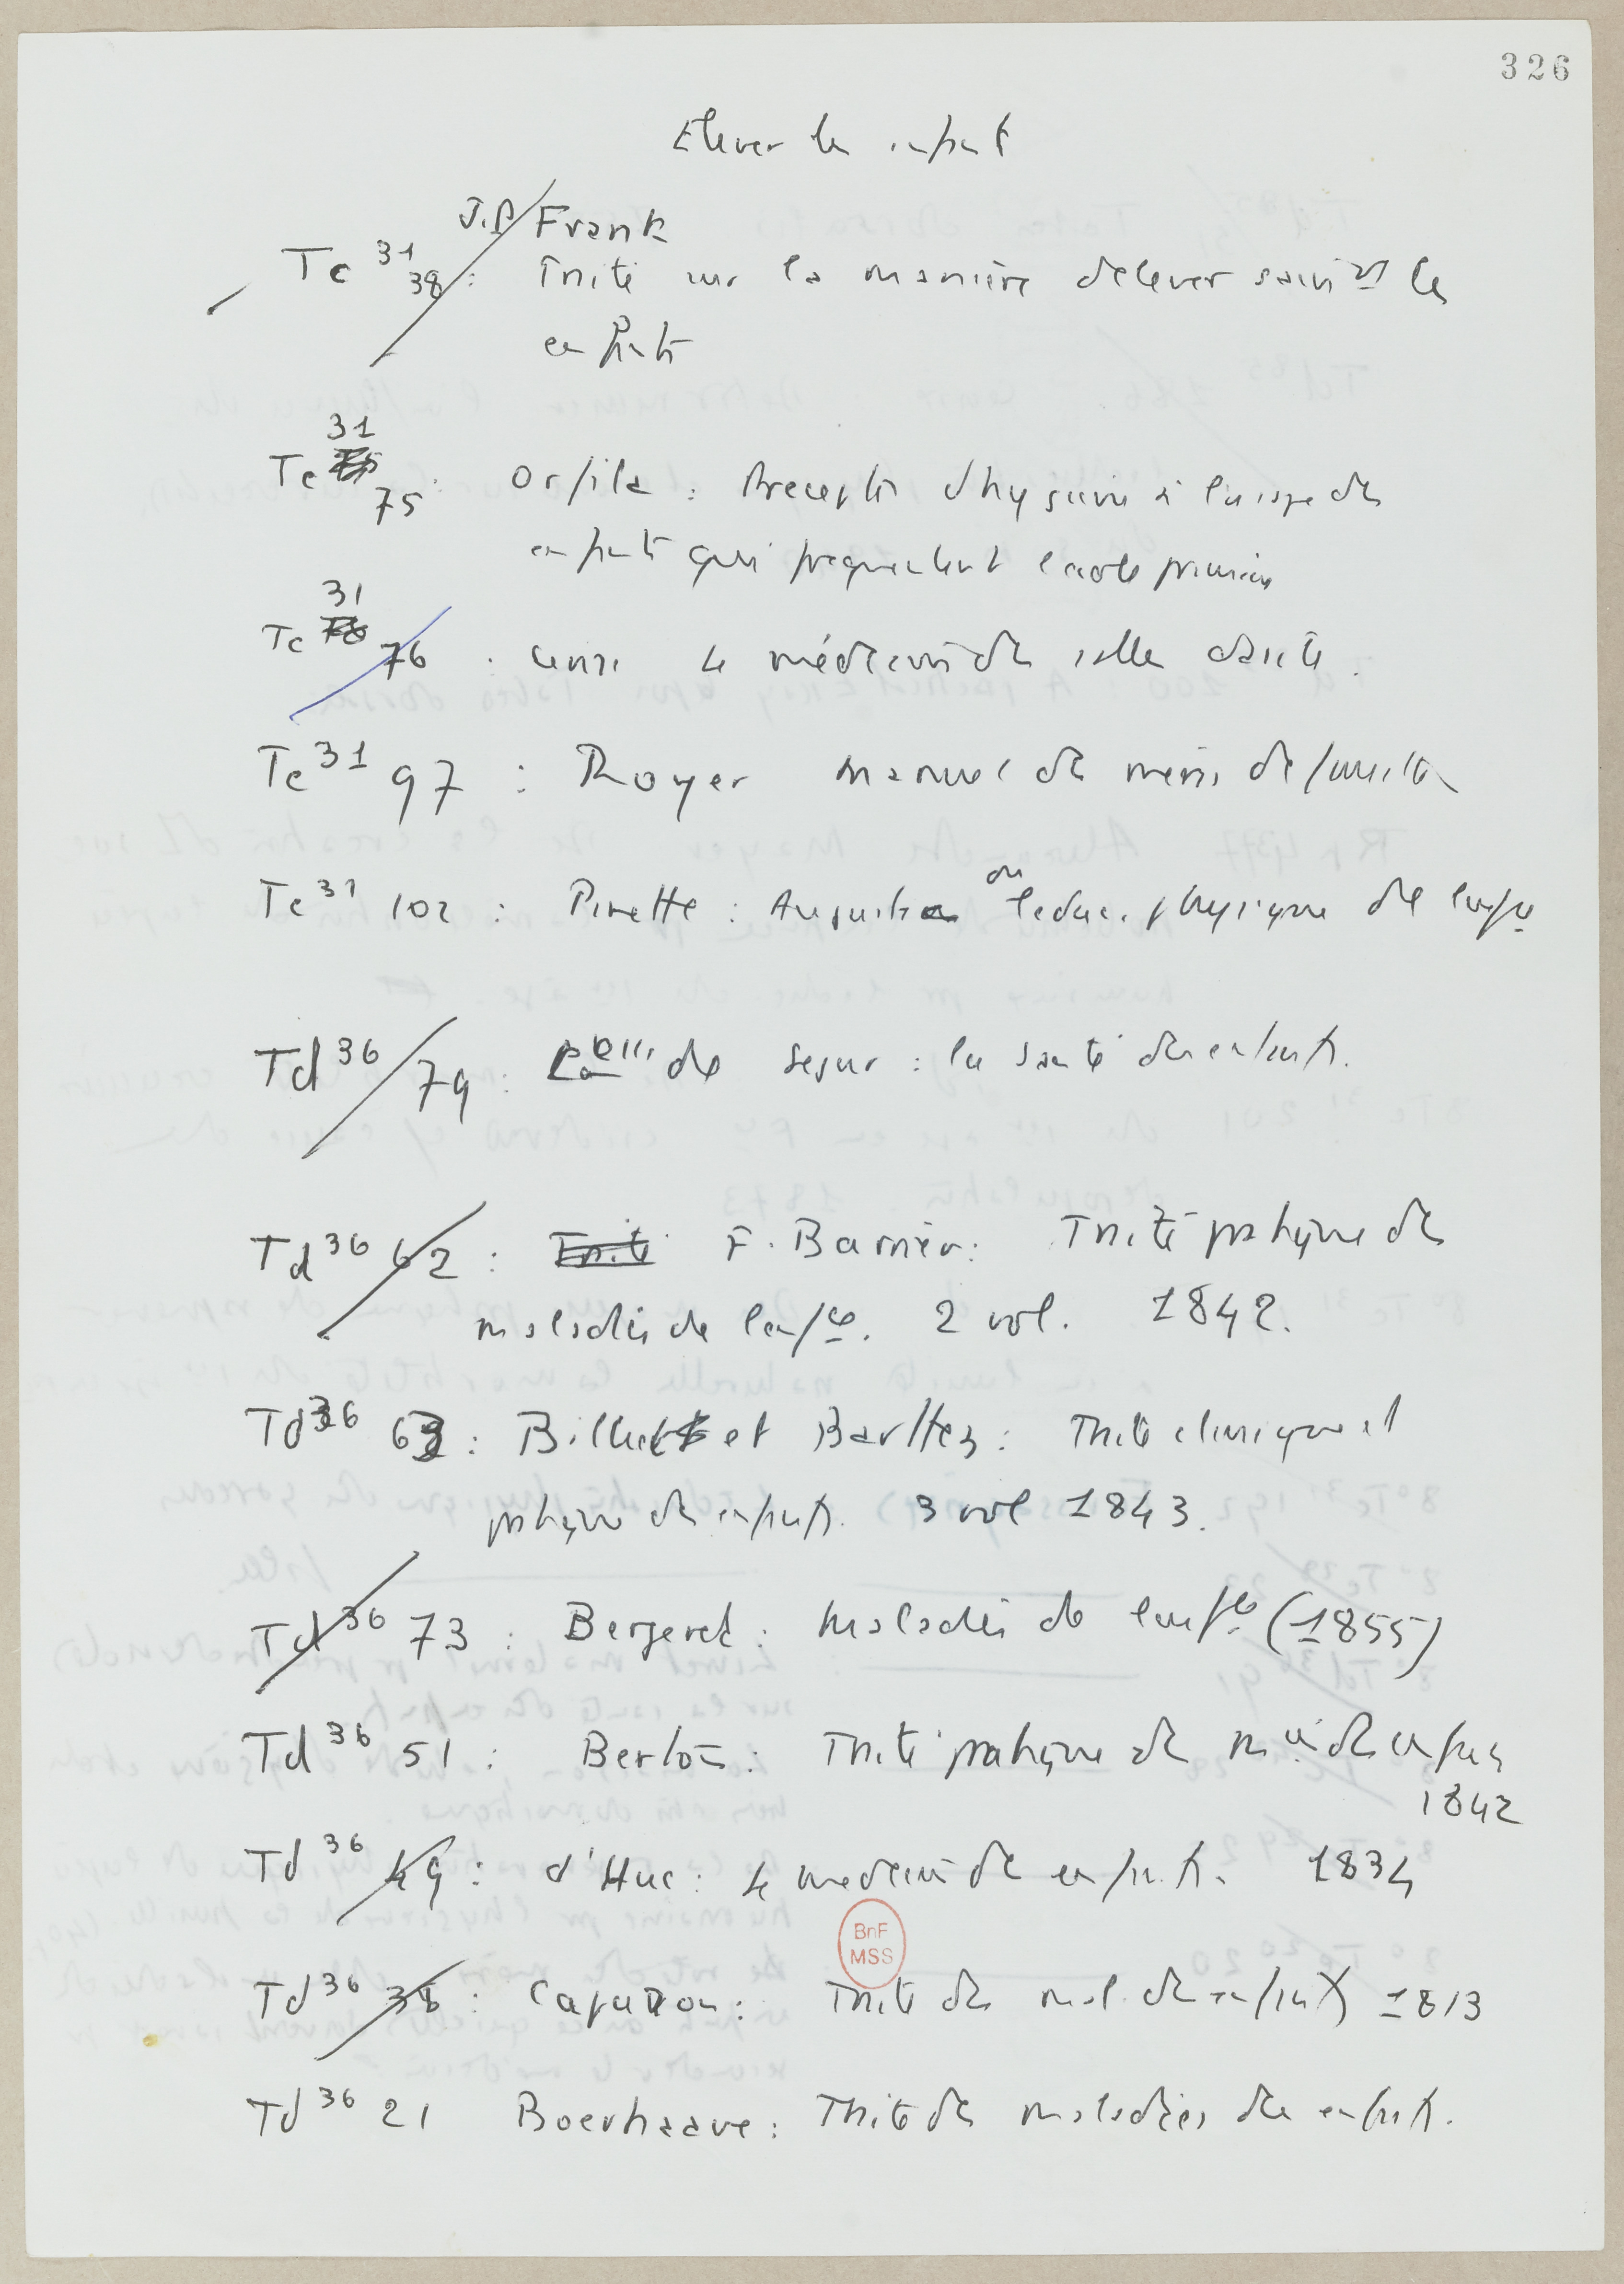 326
Elever les enfants
J.P Frank
Tc 31 38 : Traité sur la manière d'elever sainemt les
enfants
31
Tc 75 : Orfila : Preceptes d'hygiène à l'usage des
enfants qui frequentent l'ecole primaire
31
Tc 76 : Cerise Le médecin des salles d'asile.
Tc 31 97 : Royer Manuel des mères de famille
Tc 31 102 : Pirette : Augustine ou l'educ. physique de l'enfce
Td 36 79 : de Segur : la santé des enfants.
Td 36 62 : Traité F. Barrier : Traité pratique des
maladies de l'enfce. 2 vol. 1842.
Td 36 63 : Billiet et Barthez : Traité clinique et
pratique des enfants. 3 vol 1843.
Td 36 73 : Bergeret : Maladies de l'enfce (1855)
Td 36 51 : Berton : Traité pratique des mies des enfants
1842
Td 36 49 : d'Huc : Le medecin des enfants. 1834
Td 36 38 : Capuron : Traité des mal. des enfants 1813
BnF
MSS
Td 36 21 Boerhaave : Traité des maladies des enfants.